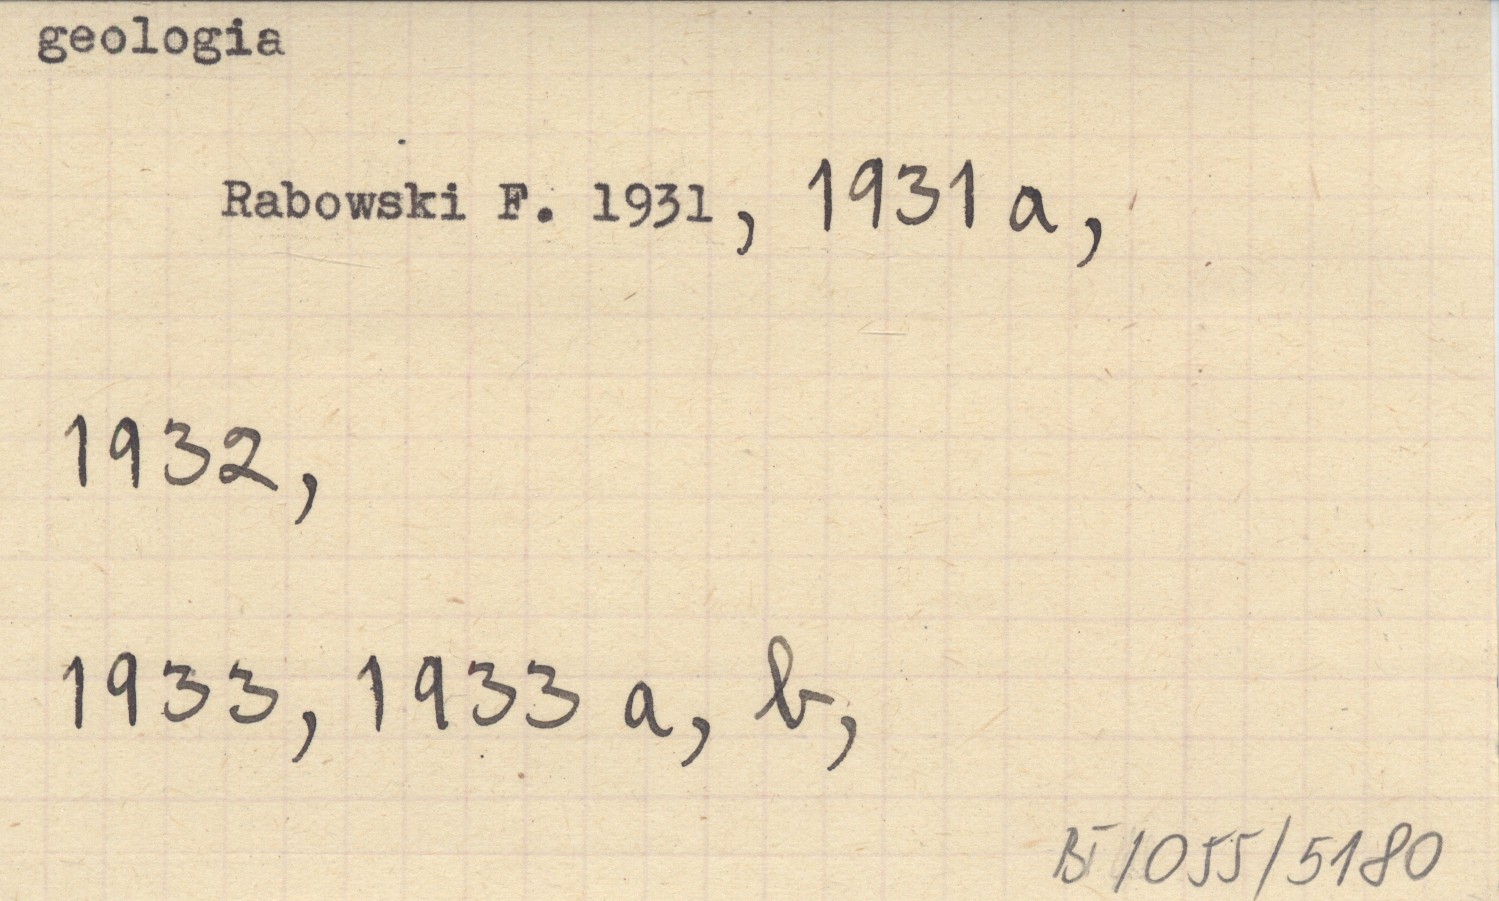 geologia
Rabowski F. 1931, 1931 a,
1932,
1933, 1933 a, b,
BI/055/5180